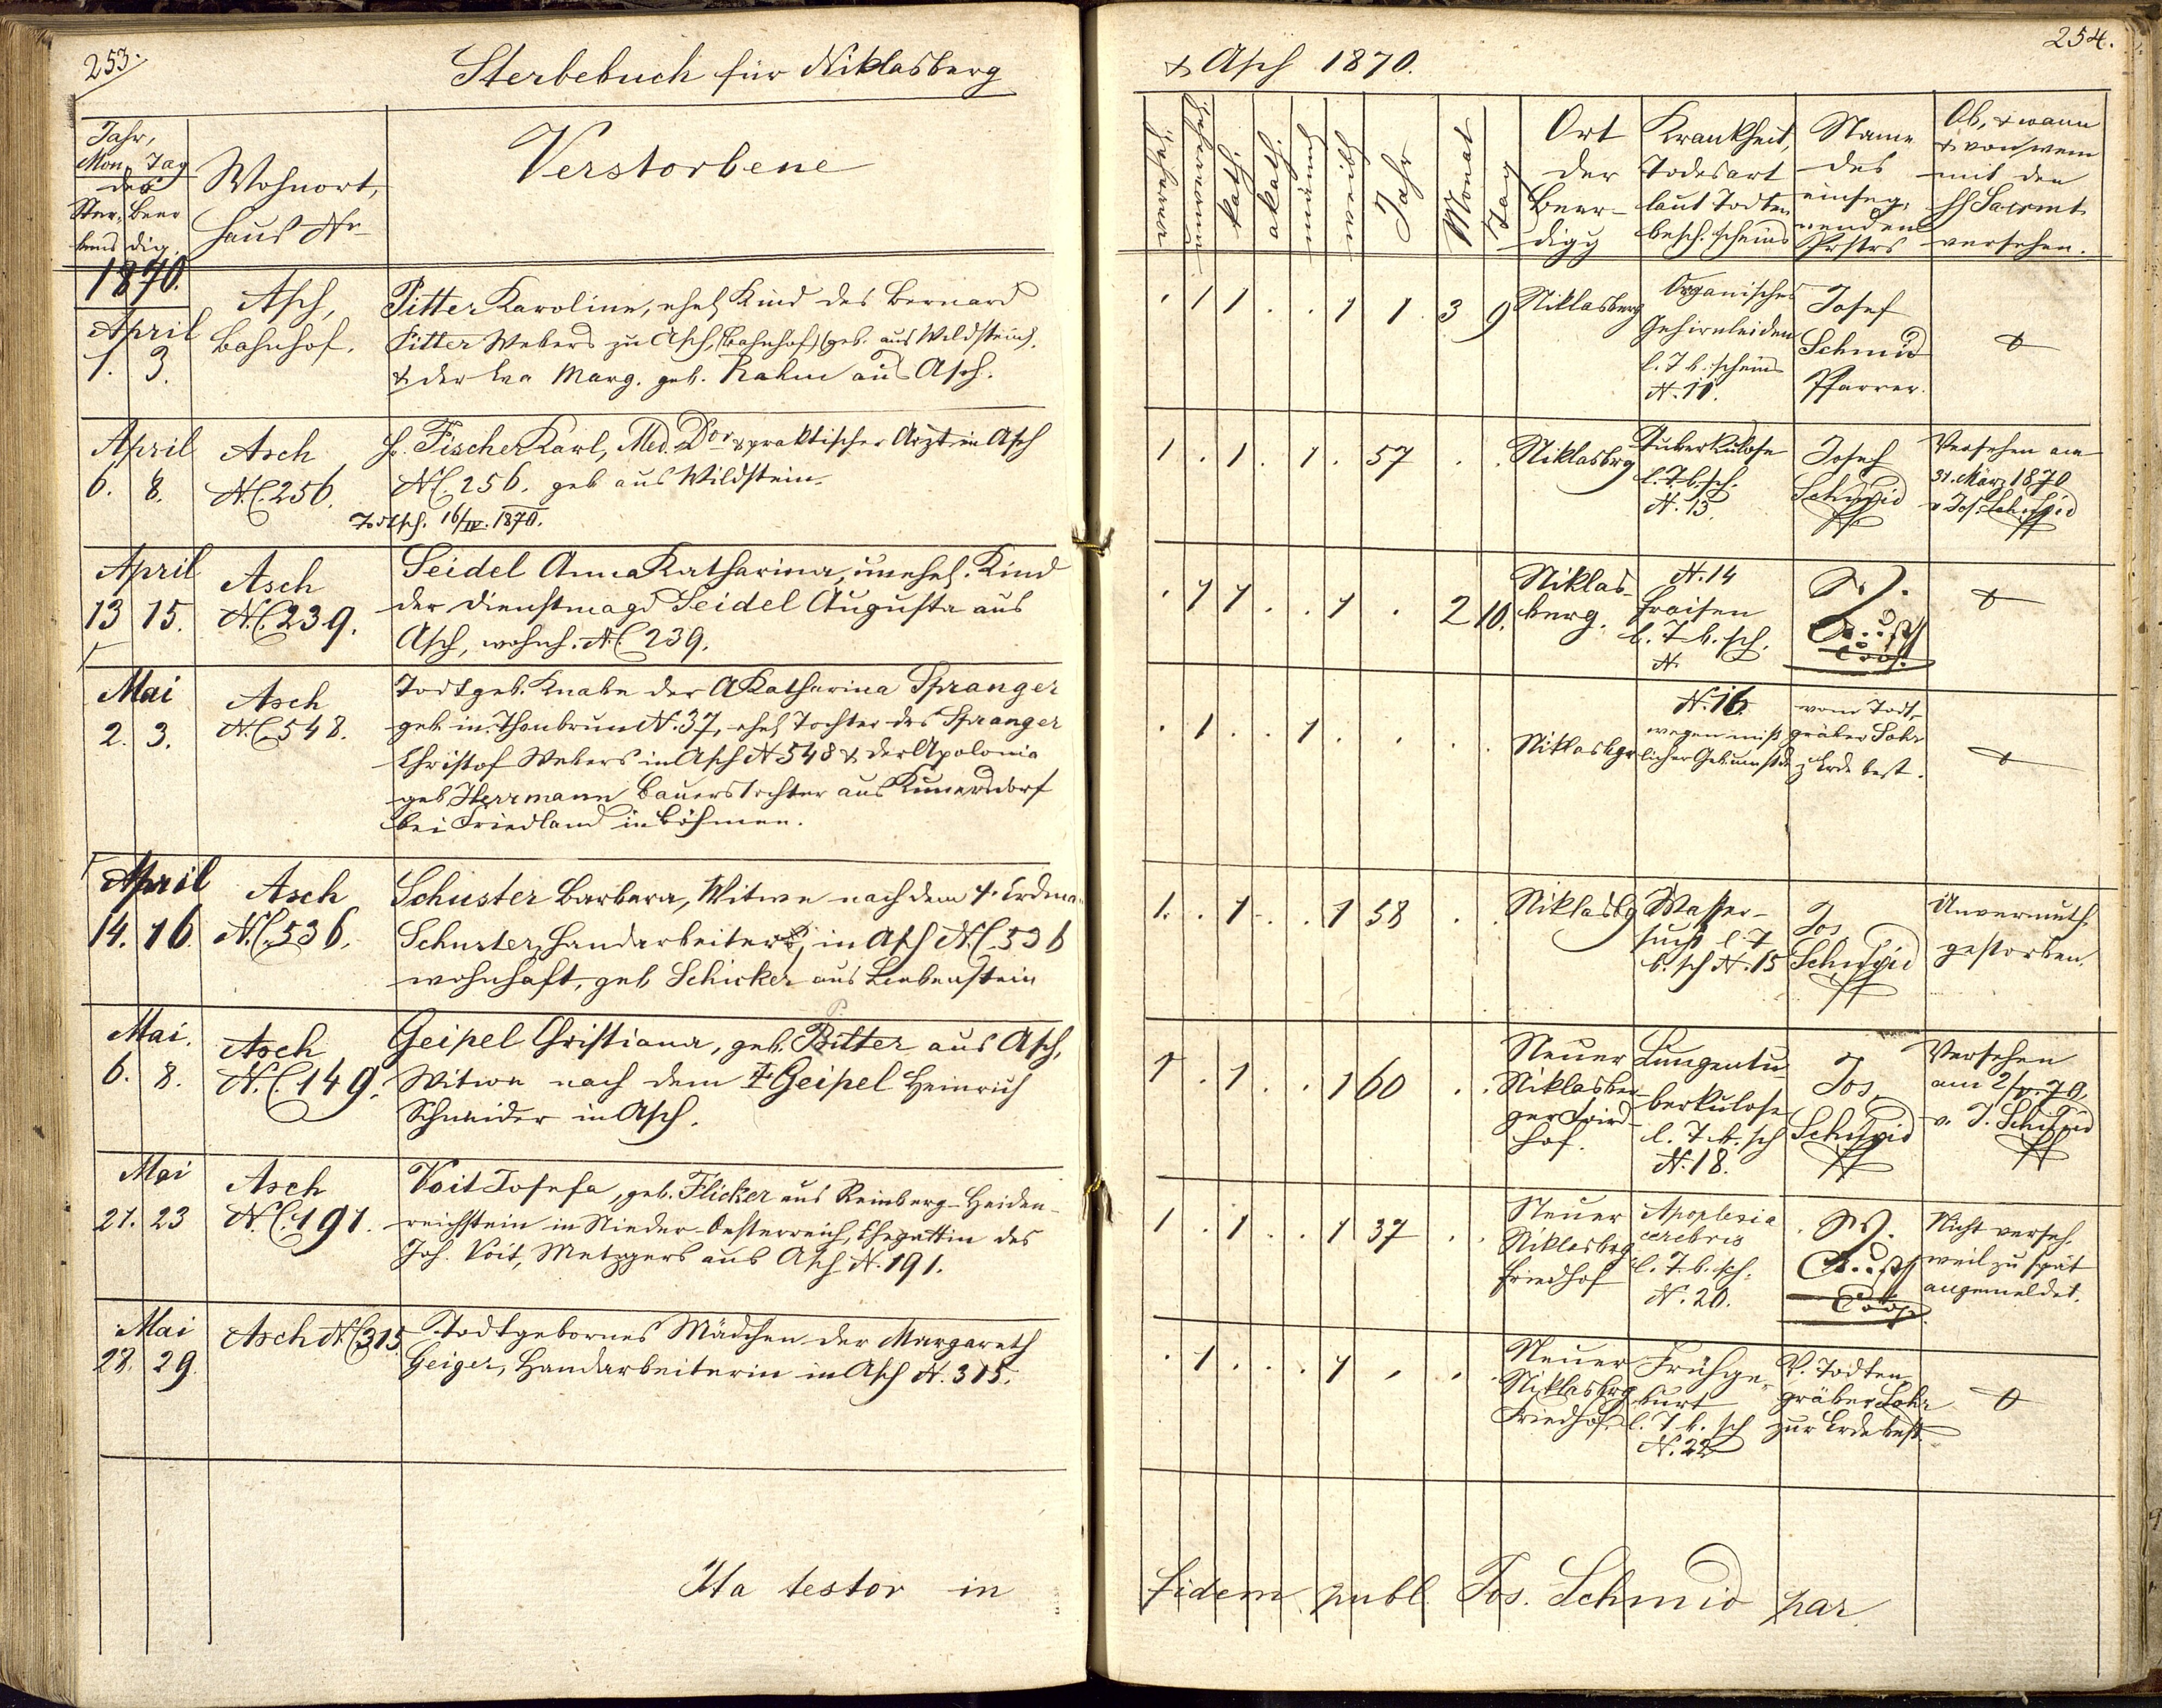 253.
Sterbebuch für Niklasberg
Jahr,
Mon, Tag
des
Ster, Beer
bens dig.
Wohnort,
Haus Nr
Verstorbene
1870.
April
1. 3.
Asch,
Bahnhof.
Pitter Karoline, ehel Kind des Bernard
Pitter Webers zu Asch, (Bahnhof) (geb. aus Wildstein).
& der Eva Marg. geb. Rahm aus Asch.
April
6. 8.
Asch
N.C. 256.
H. Fischer Karl, Med. Dor & praktischer Arzt in Asch
NC. 256. geb aus Wildstein.
Todtsch. 16/IV. 1870.
April
13 15.
Asch
N.C. 239.
Seidel Anna Katharina, unehel. Kind
der Dienstmagd Seidel Augusta aus
Asch, wohnh. N.C. 239.
Mai
2. 3.
Asch
N.C. 548.
Todtgeb. Knabe der AKatharina Spranger
geb in Thonbrunn N. 37, ehel Tochter des Spranger
Christof Webers in Asch N 548 & der Apolonia
geb Herrmann Bauerstochter aus Kunersdorf
bei Friedland in Böhmen.
April
14. 16
Asch
N.C. 536.
Schuster Barbara, Witwe nach dem †
Schuster, Handarbeiter, in Asch N.C. 536
wohnhaft, geb Schicker aus Liebenstein
Mai.
6. 8.
Asch
N.C. 149.
Geipel Christiana, geb. Pitter aus Asch,
Witwe nach dem † Geipel Heinrich
Schneider in Asch.
Mai
21. 23
Asch
N.C. 191.
Voit Josefa, geb. Flicker aus Reinberg-Heiden-
reichstein in Nieder-Oesterreich, Ehegattin des
Joh. Voit, Metzgers aus Asch N. 191.
Mai
28. 29.
Asch N.C. 315
Todtgebornes Mädchen der Margareth
Geiger, Handarbeiterin in Asch N. 315.
Ita testor in
254.
& Asch 1870.
kath.
akath.
männl
weibl
Jahr
Monat
Tag
Ort
der
Beer-
digg
Krankheit,
Todesart
laut Todten
besch. scheins
Name
des
einseg-
nenden
Prstrs
Ob, & wann
& von wem
mit den
hl Sacrmt
versehen.
. 1 1 . . 1 1 3 9
Niklasberg
Organisches
Gehirnleiden
l. T b. scheins
N. 11.
Josef
Schmid
Pfarrer.
1 . 1 . 1 . 57 . .
Niklasbrg
Tuberkulose
l. T. b. sch.
N. 13.
Josef
Schmid
Versehen am
31. März 1870
v Jos. Schmid
. 1 1 . . 1 . 2 10.
Niklas-
berg.
N. 14
Fraisen
l. T b. sch.
N.
. 1 . . 1 . . . .
Niklasbgr
N. 16.
wegen miß
licher Geburtsd
vom Todt-
gräber Lohr
z Erde best.
1. . 1 . . 1 58 . .
Niklasbg
Wasser-
sucht l. T
b. sch N. 15
Jos
Schmid
Unvermuth.
gestorben.
1 . 1 . . 1 60 . .
Neuer
Niklasber
ger Fried-
hof.
Lungentu
berkulose
l. T. b. sch
N. 18.
Jos.
Schmid
Versehen
am 2/V. 70.
v. J. Schmid
1 . 1 . . 1 37 . .
Neuer
Niklasbrg
Friedhof
Apoplexia
cerebris
l. T. b. sch.
N. 20.
Nicht verseh.
weil zu spät
angemeldet.
. 1 . . . 1 . . .
Neuer
Niklasbrg
Friedhof.
Frühge-
burt
l. T. b. sch
N. 22
V. Todten
gräber Lohr
zur Erde best.
fidem publ. Jos. Schmid par